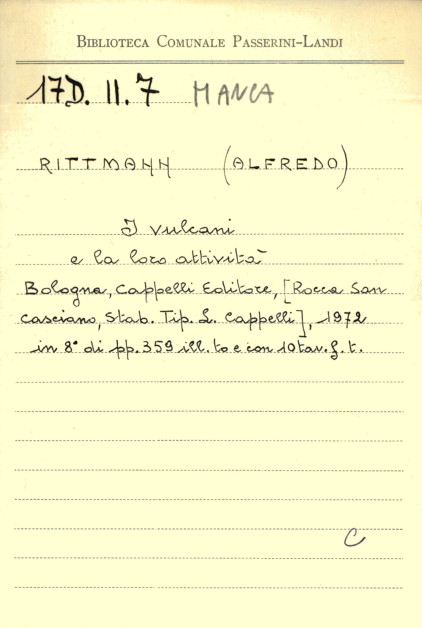 BIBLIOTECA COMUNALE PASSERINI-LANDI
17D. II. 7 MANCA
RITTMANN (ALFREDO)
I vulcani
e la loro attività
Bologna, Cappelli Editore, [Rocca San
Casciano, Stab. Tip. L. Cappelli], 1972
in 8° di pp. 359 ill. to e con 10 tav. f. t.
C